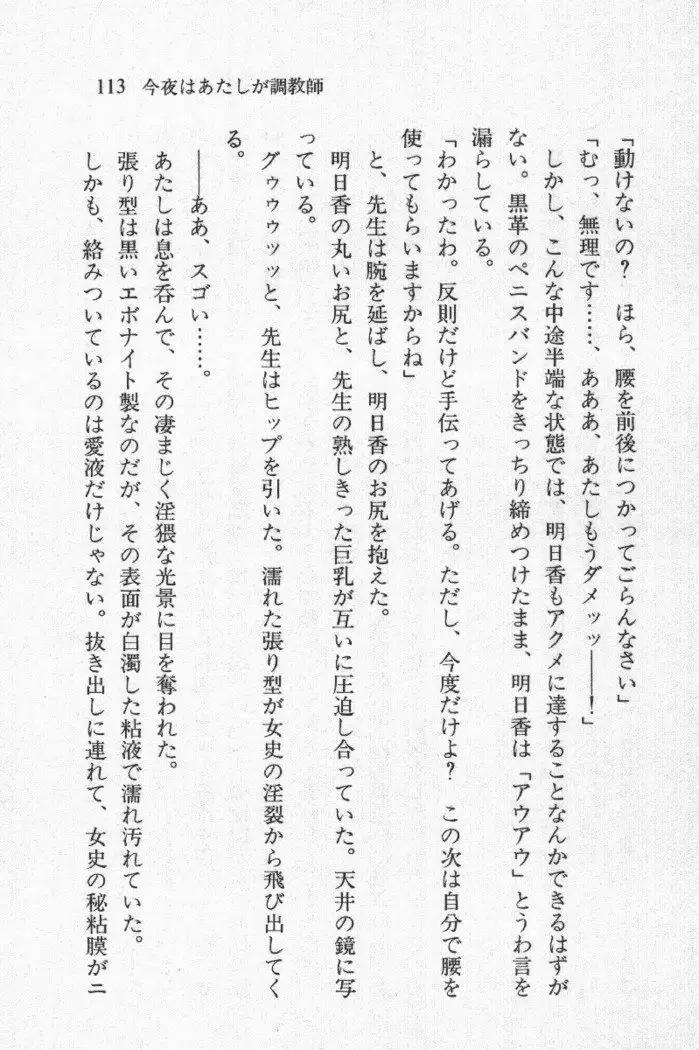 113 今夜はあたしが調教師
「動けないの？　ほら、腰を前後につかってごらんなさい」
「むっ、無理です……、あああ、あたしもうダメッッ――！」
しかし、こんな中途半端な状態では、明日香もアクメに達することなんかできるはずが
ない。黒革のペニスバンドをきっちり締めつけたまま、明日香は「アウアウ」とうわ言を
漏らしている。
「わかったわ。反則だけど手伝ってあげる。ただし、今度だけよ？　この次は自分で腰を
使ってもらいますからね」
と、先生は腕を延ばし、明日香のお尻を抱えた。
明日香の丸いお尻と、先生の熟しきった巨乳が互いに圧迫し合っていた。天井の鏡に写
っている。
グゥゥゥッッと、先生はヒップを引いた。濡れた張り型が女史の淫裂から飛び出してく
る。
――ああ、スゴい……。
あたしは息を呑んで、その凄まじく淫猥な光景に目を奪われた。
張り型は黒いエボナイト製なのだが、その表面が白濁した粘液で濡れ汚れていた。
しかも、絡みついているのは愛液だけじゃない。抜き出しに連れて、女史の秘粘膜がニ